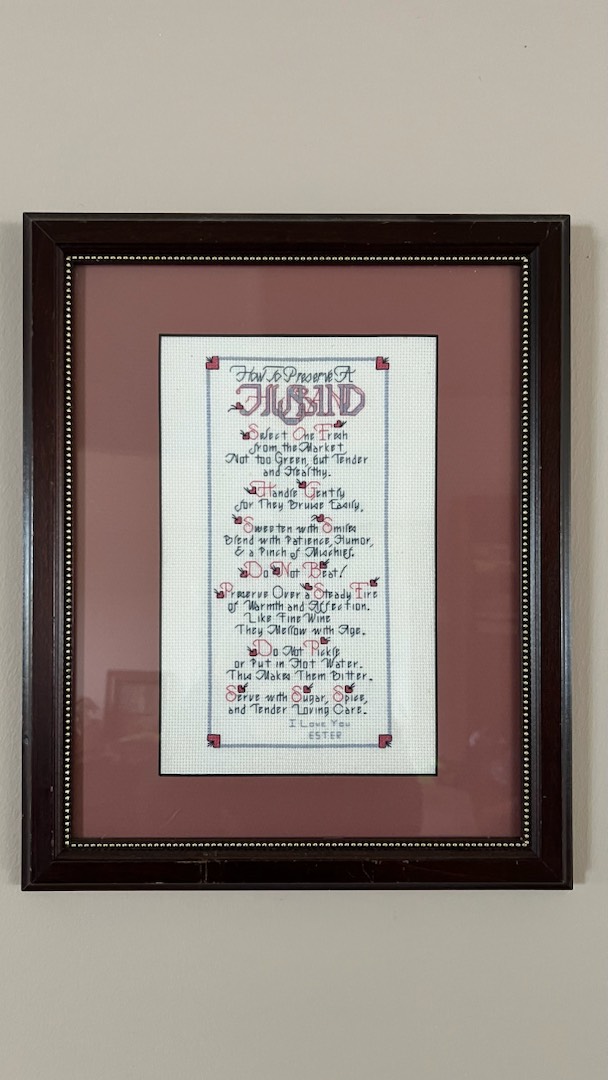 How To Preserve A
HUSBAND
Select One Fresh
from the Market
Not too Green, but Tender
and Healthy.
Handle Gently
for They Bruise Easily.
Sweeten with Smiles
Blend with Patience, Humor,
& a Pinch of Mischief.
Do Not Beat!
Preserve Over a Steady Fire
of Warmth and Affection.
Like Fine Wine
They Mellow with Age.
Do Not Pickle
or Put in Hot Water.
This Makes Them Bitter.
Serve with Sugar, Spice,
and Tender Loving Care.
I Love You
ESTER